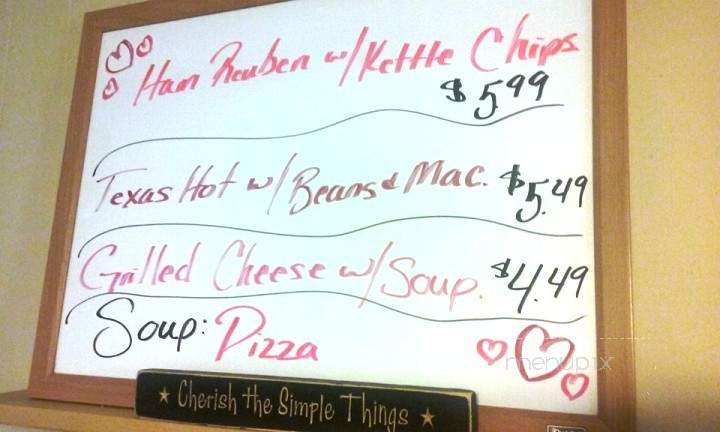 Ham Reuben w/Kettle Chips
$5.99
Texas Hot w/Beans & Mac. $5.49
Grilled Cheese w/Soup. $4.49
Soup: Pizza
menupix
★ Cherish the Simple Things ★